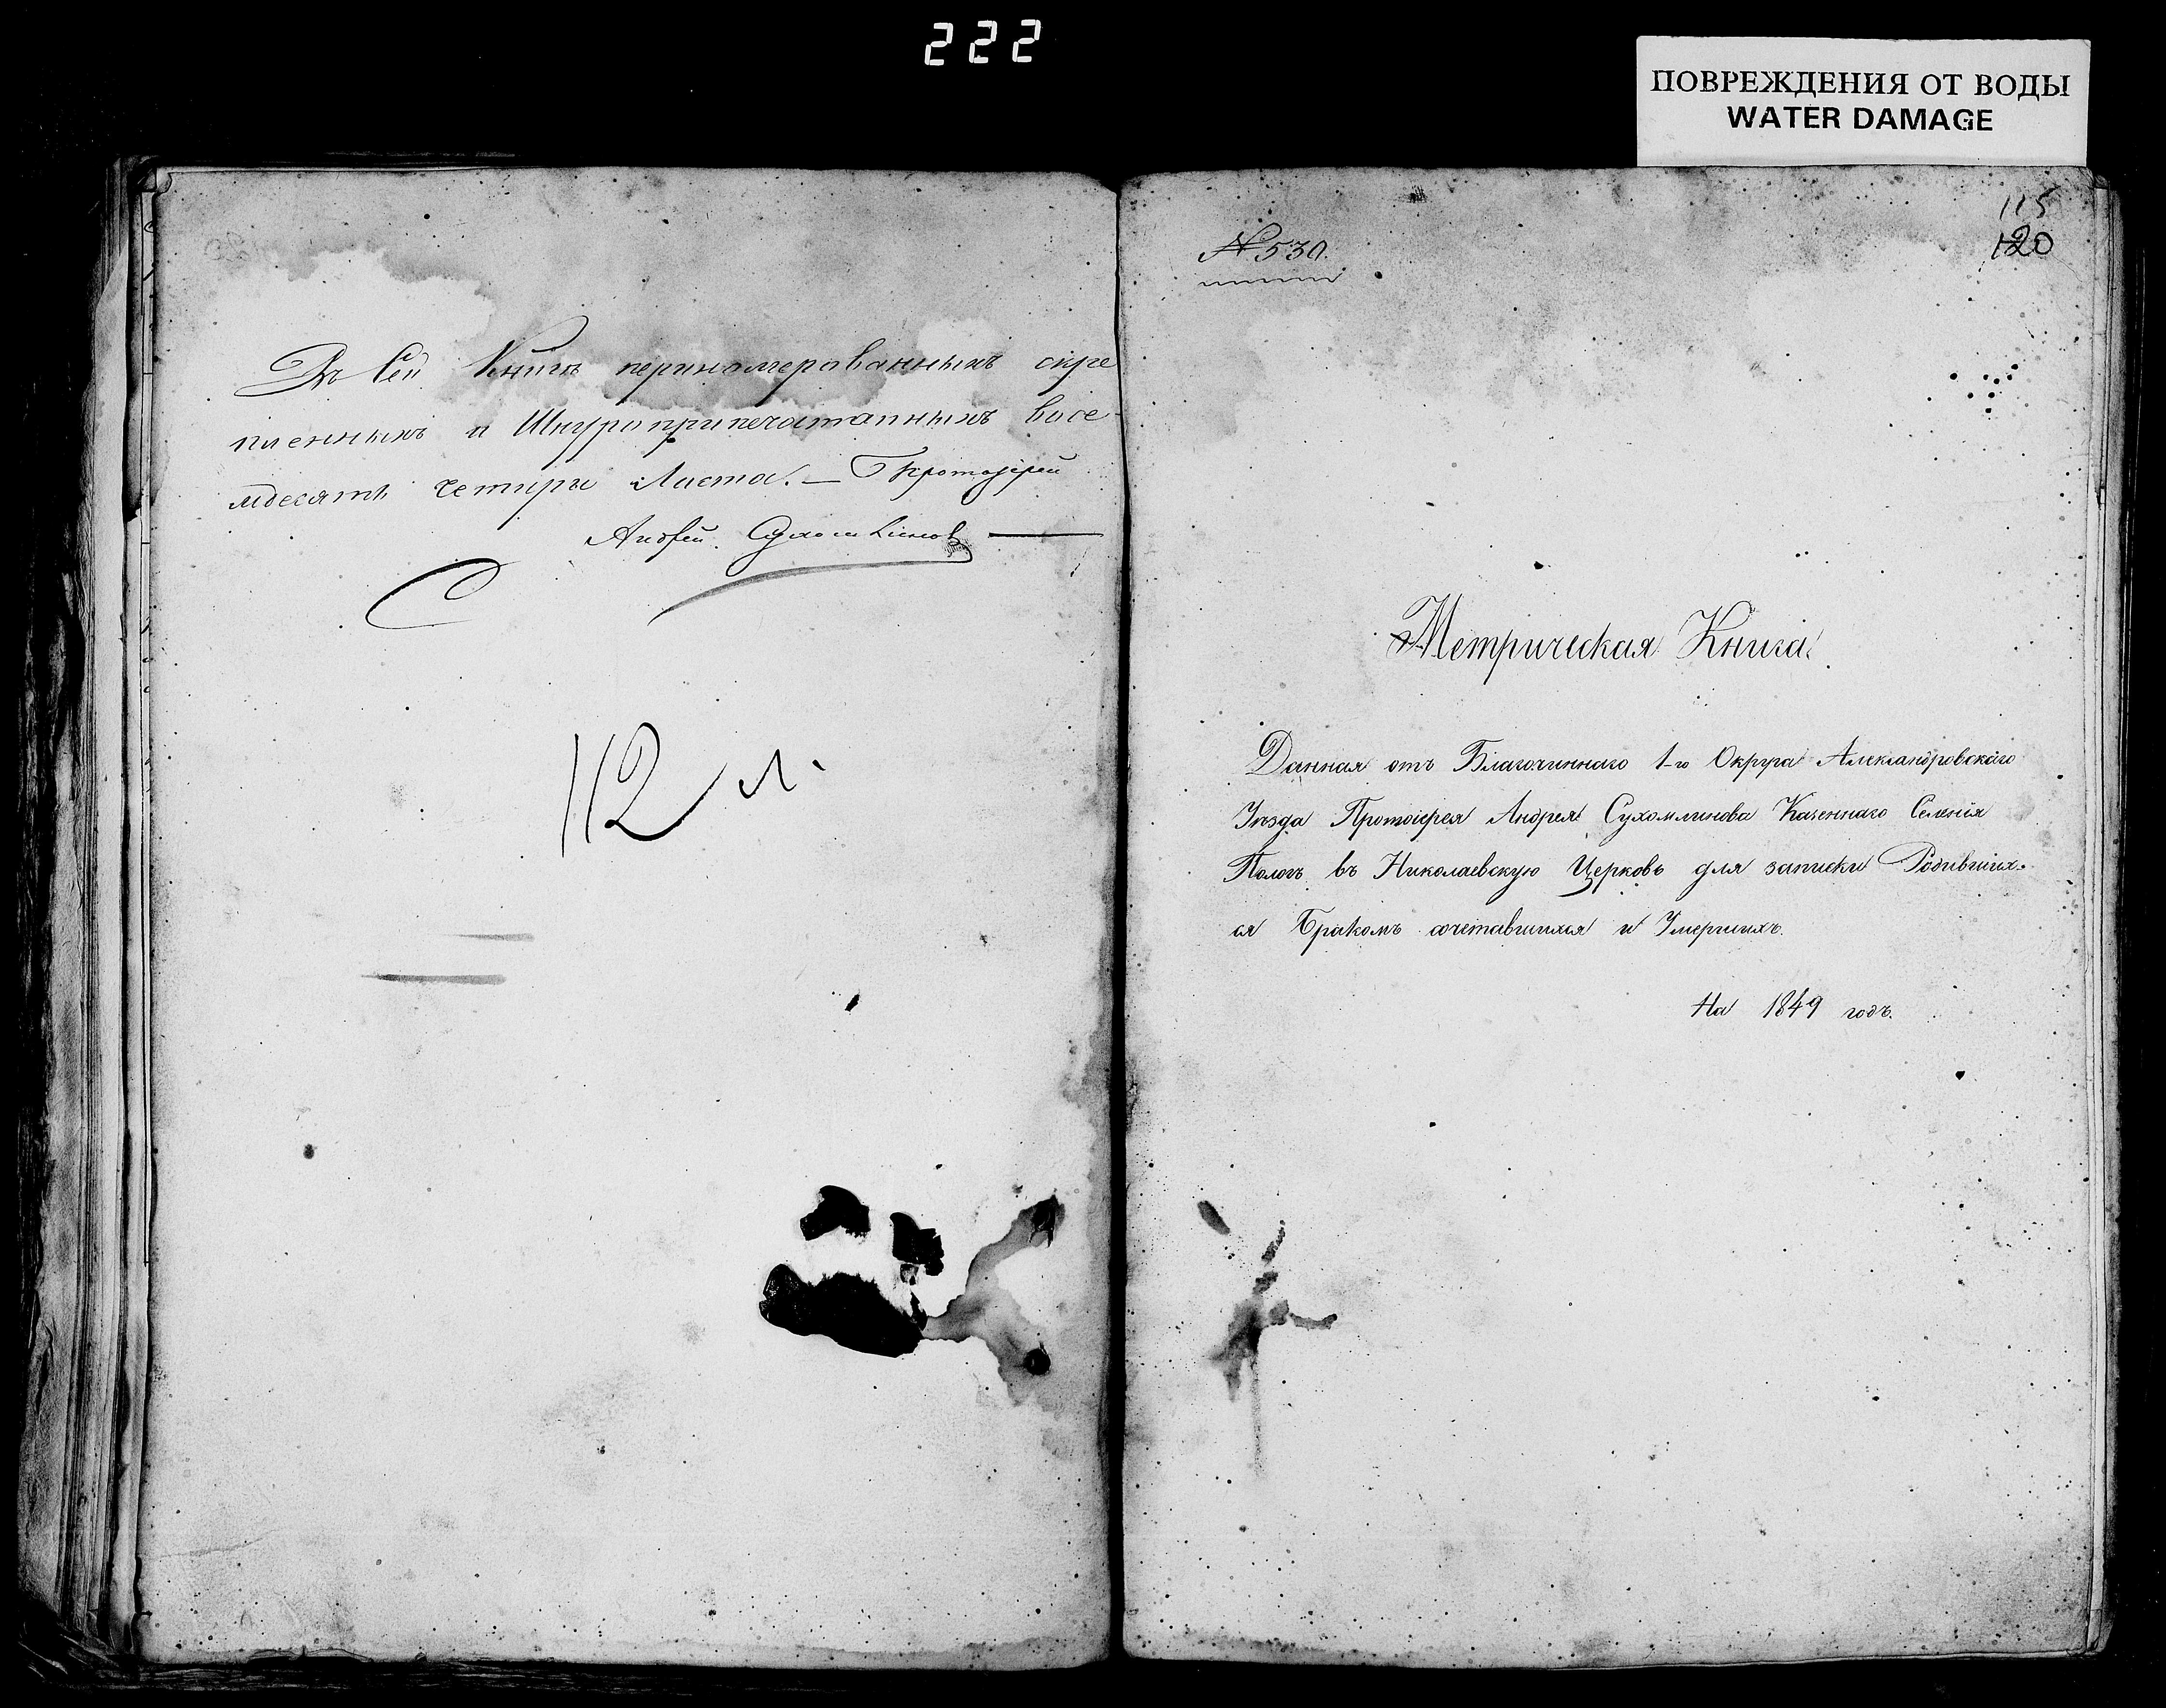 222
ПОВРЕЖДЕНИЯ ОТ ВОДЫ
WATER DAMAGE
Въ сей Книгѣ перинамерованныхъ скре
пленныхъ и Шнуроприпечатанныхъ восе-
мдесятъ четыры Листа. — Протоіерей
Андрей Сухомлиновъ —
112 л.
115
120
№ 530.
Метрическая Книга
Данная отъ Благочиннаго 1-го Округа Александровскаго
Уѣзда Протоіерея Андрея Сухомлинова Казеннаго Селенія
Пологъ въ Николаевскую Церковь для записки Родивших-
ся Бракомъ сочетавшихся и Умершихъ.
На 1849 годъ.